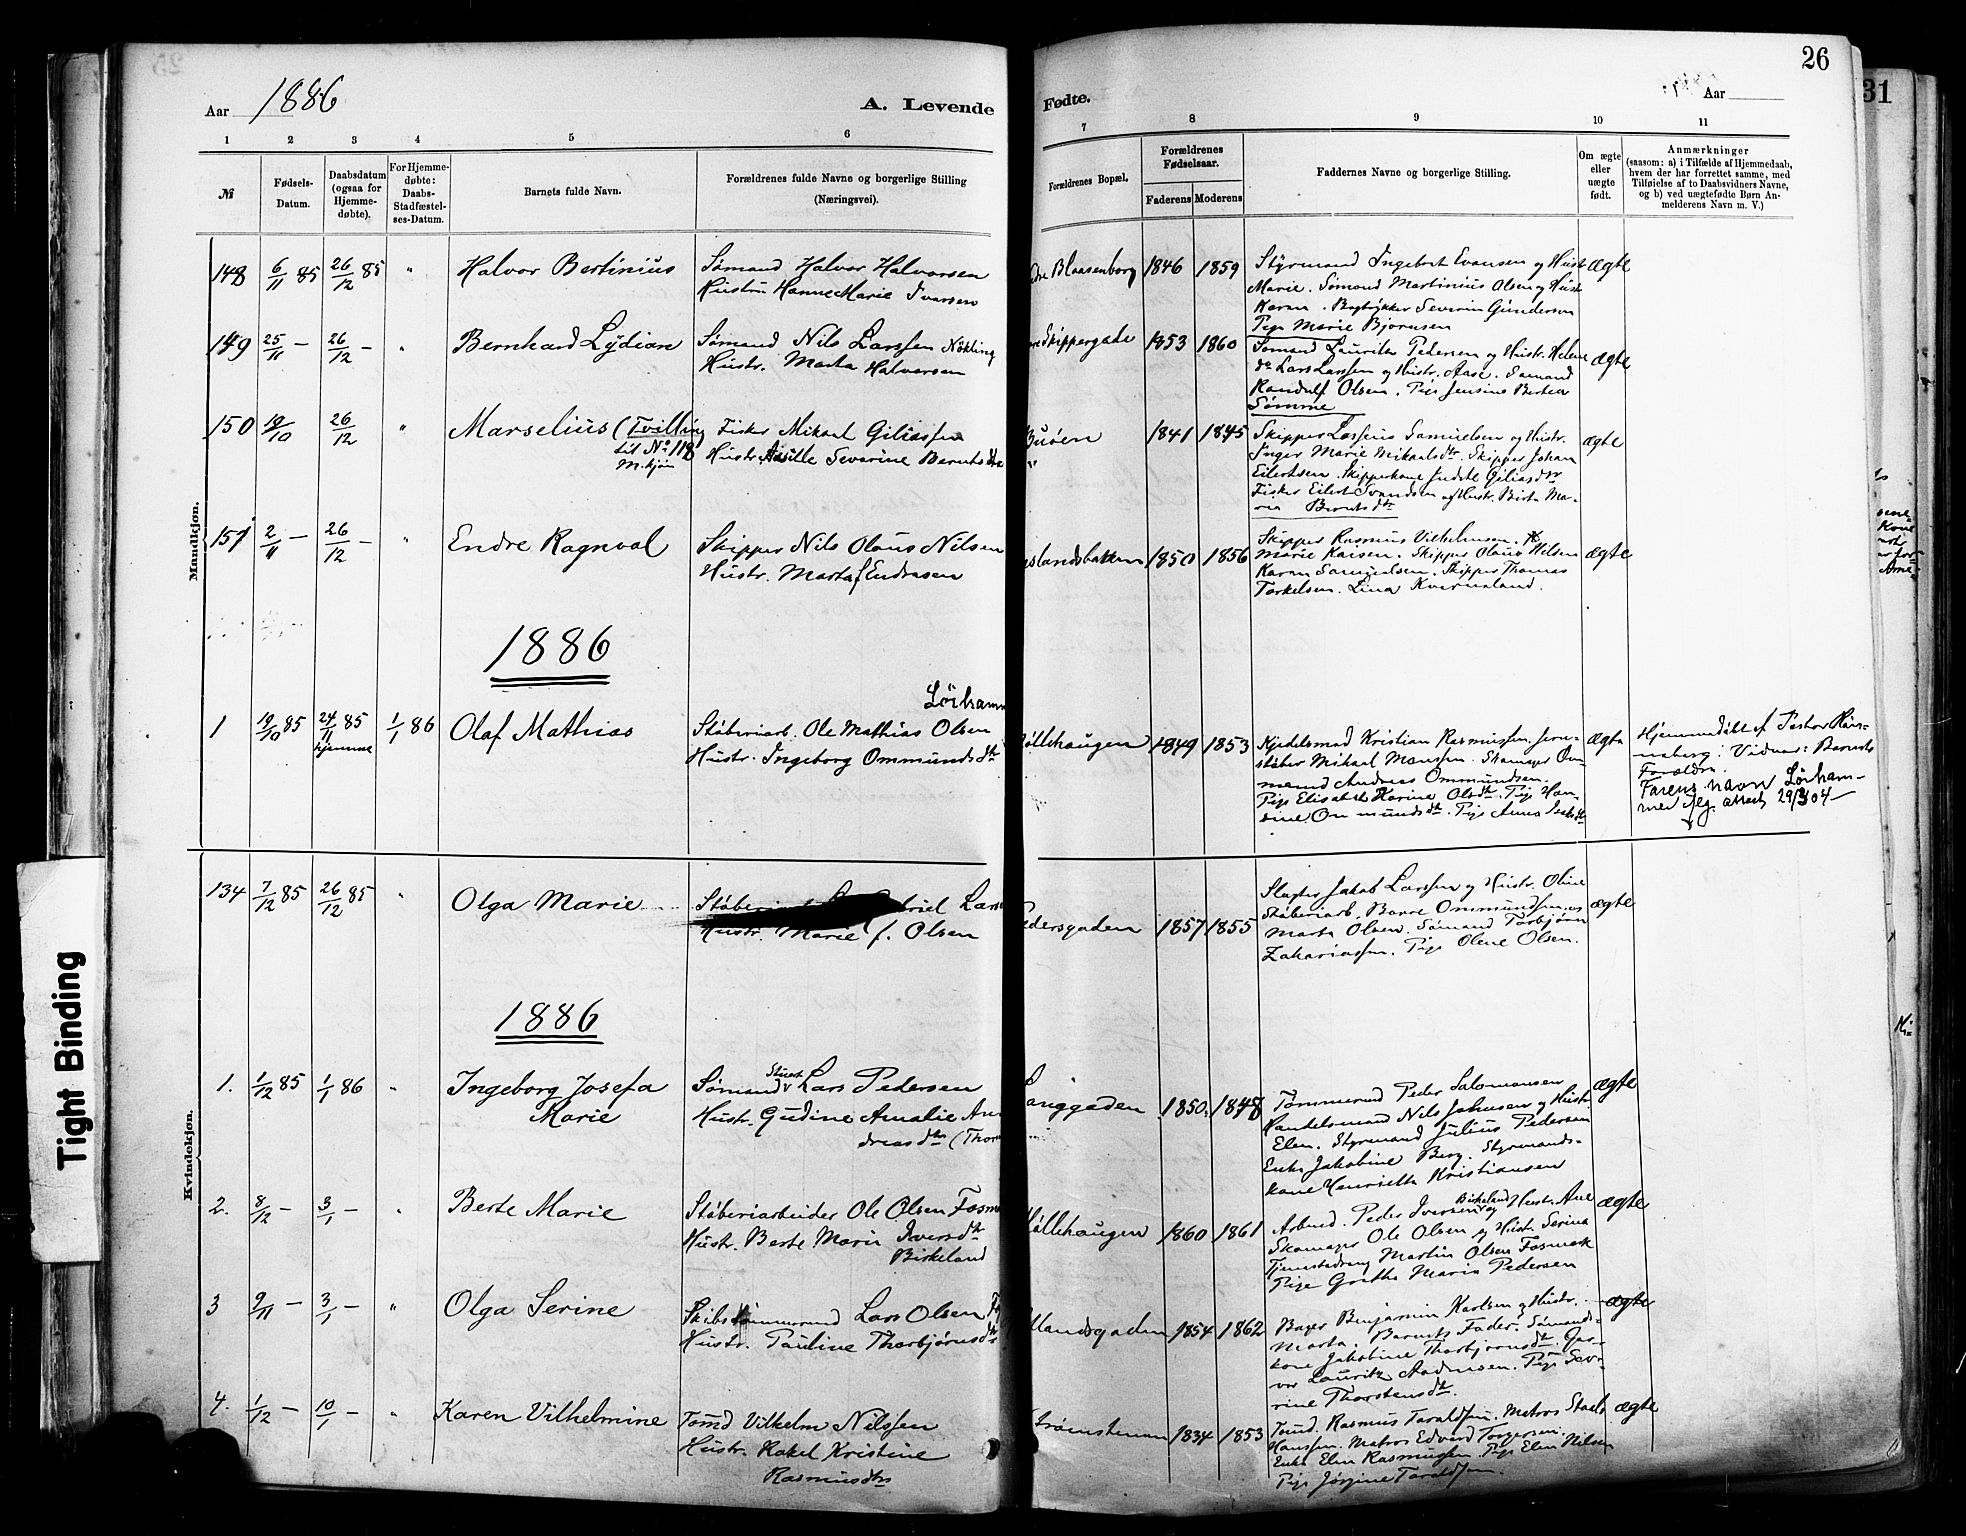 26
31
Aar 1886
A. Levende
Fødte.
Aar
1 2 3 4 5 6 7 8 9 10 11
№
Fødsels-Datum.
Daabsdatum (ogsaa for Hjemmedøbte).
For Hjemmedøbte: Daabs-Stadfæstelses-Datum.
Barnets fulde Navn.
Forældrenes fulde Navne og borgerlige Stilling
(Næringsvei).
Forældrenes Bopæl.
Forældrenes Fødselsaar.
Faderens Moderens
Faddernes Navne og borgerlige Stilling.
Om ægte eller uægte født.
Anmærkninger
(saasom: a) i Tilfælde af Hjemmedaab,
hvem der har forrettet samme, med
Tilføielse af to Daabsvidners Navne,
og b) ved uægtefødte Børn An-
melderens Navn m. V.)
Mandkjøn.
148 6/11 85 26/12 85 " Halvor Bertinius Sømand Halvor Halvorsen
Hustru Hanne Marie Ivarsen
Blaasenborg 1846 1859 Styrmand Ingebret Evansen og Hust
Marie. Sømand Martinius Olsen og Hustr
Karen. Bogtrykker Severin Gundersen
Pige Marie Bjørnsen
ægte
149 25/11 – 26/12 – " Bernhard Lydian Sømand Nils Larssen Nökling
Hustr. Marta Halvorsen
Skippergade 1853 1860 Sømand Lauritz Pedersen og Hustr. Helene
do Lars Larssen og Hustr. Aase. Sømand
Randulf Olsen. Pige Jensine Bertea
Sømme
ægte
150 19/10 26/12 " Marselius (Tvilling
til No 118
M.kjøn
Fisker Mikael Giliassen
Hustr. Severine Berntsdtr
Buøen 1841 1845 Skipper Samuelsen og Hustr.
Inger Marie Mikaelsdtr. Skipper Johan
Eilertsen. Skipperkone Giliasdtr
Fisker Eilert Svendsen og Hustr. Berta Ma-
ria Berntsdtr
ægte
151 2/11 – 26/12 – " Endre Ragnval Skipper Nils Olaus Nilsen
Hustr. Marta f. Endresen
slandsbakken 1850 1856 Skipper Rasmus Vilhelmsen.
Marie Kaisen. Skipper Olaus Nilsen
Karen Samuelsen. Skipper Thomas
Torkelsen. Lina Kvernaland.
ægte
1886
1 19/10 85 24/11 85
hjemme
1/1 86 Olaf Mathias
Lörhamm
Støberiarb. Ole Mathias Olsen
Hustr. Ingeborg Ommundsdtr
øllehaugen 1849 1853 Kjedelsmed Kristian Rasmussen. Jern-
støber Mikael Monssen. Skomager Om-
mund Andreas Ommundsen.
Pige Elisabet Karine Olsdtr. Pige Han-
sine Ommundsdtr. Pige Anna
ægte
Hjemmedøbt af Pastor
Vidner: Barnets
Forældre.
Farens navn Lörham-
mer attest 29/3 04 –
Kvindekjøn.
134 7/12 85 26/12 85 " Olga Marie Lars
Hustr. Marie f. Olsen
edersgaden 1857 1855 Slagter Jakob Larssen og Hustr. Oline
Støberiarb. Ommundsen og
Marta Olsen. Sømand Torbjørn
Zakariassen. Pige Olene Olsen.
ægte
1886
1. 1/12 85 1/1 86 " Ingeborg Josefa
Marie
Sømand Lars Pedersen
Hustr. Gudine Amalie An
dreasdtr (Thor
anggaden 1850. 1848 Tømmermd Peder Salomonsen
Handelsmand Nils Johnsen og Hustr
Elen. Styrmand Julius Pedersen
Enke Jakobine Berg. Styrmands-
kone Henriette Kristiansen
ægte
2. 8/12 – 3/1 – " Berte Marie Støberiarbeider Ole Olsen Fosm
Hustr. Berte Marie Iversdtr
Birkeland
øllehaugen 1860 1861 Arbmd. Peder Iversen Birkeland og Hustr. Ane
Skomager Ole Olsen og Hustr Serina
Tjenestedreng Martin Olsen Fosmark
Pige Grethe Maria Pedersen
ægte
3 9/11 – 3/1 – " Olga Serine Skibstømmermd Lars Olsen
Hustr. Pauline Thorbjørnsdtr
llandsgaden 1854 1862 Bager Benjamin Karlsen og Hustr.
Marta. Barnets Fader. Sømands-
kone Jakobine Thorbjørnsdtr. Gar-
ver Lauritz Aadnesen. Pige Seve-
rine Thorstensdtr.
ægte
4. 1/12 – 10/1 – " Karen Vilhelmine Tømd Vilhelm Nilssen
Hustr. Rakel Kristine
Rasmusdtr
Strømstenen 1834 1853 Tømd. Rasmus Taraldsen. Matros
Hanssen. Matros Edvard Torgersen.
Enke Elen Rasmussen. Pige Elen Nilsen
Pige Jørgine Taraldsen.
ægte
Tight Binding